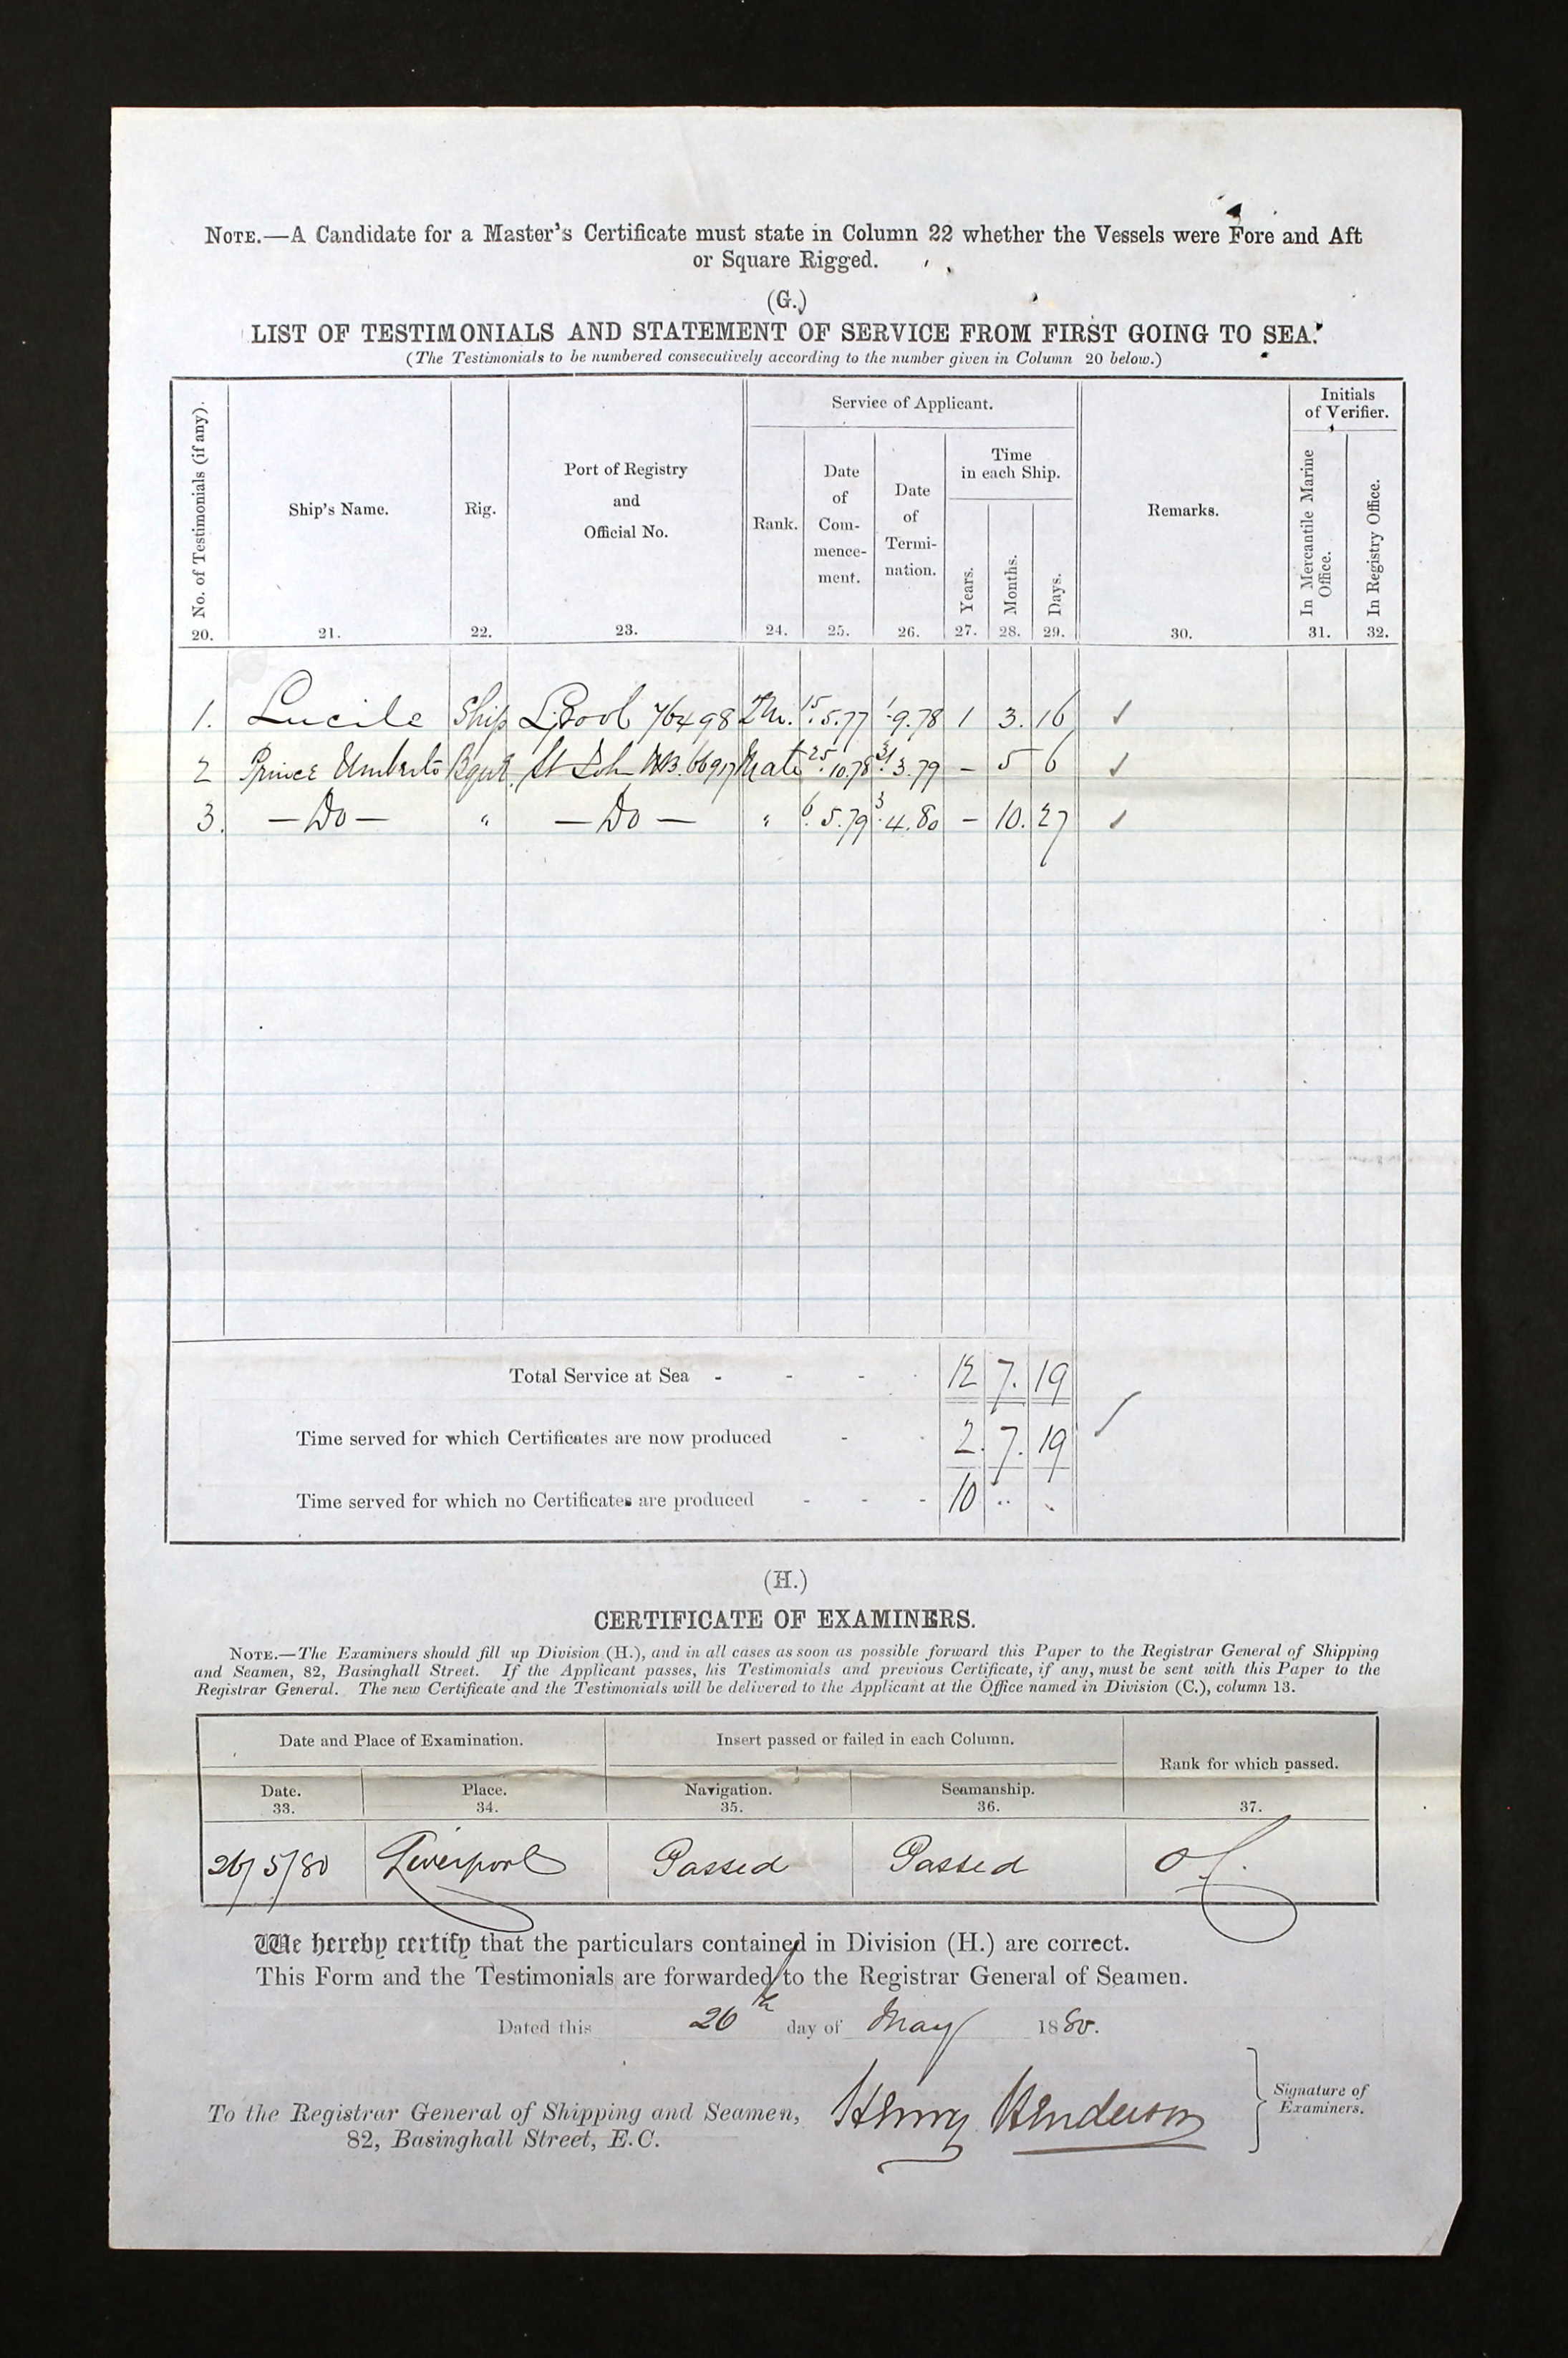 NOTE.—A Candidate for a Master's Certificate must state in Column 22 whether the Vessels were Fore and Aft
or Square Rigged.
(G.)
LIST OF TESTIMONIALS AND STATEMENT OF SERVICE FROM FIRST GOING TO SEA.
(The Testimonials to be numbered consecutively according to the number given in Column 20 below.)
No. of Testimonials (if any).
20.
Ship's Name.
21.
Rig.
22.
Port of Registry
and
Official No.
23.
Service of Applicant.
Rank.
24.
Date
of
Com-
mence-
ment.
25.
Date
of
Termi-
nation.
26.
Time
in each Ship.
Years.
27.
Months.
28.
Days.
29.
Remarks.
30.
Initials
of Verifier.
In Mercantile Marine
Office.
31.
In Registry Office.
32.
1. Lucile Ship L.Pool 76498 15.5.77 1.9.78 1 3. 16 ✓
2 Prince Umberto Bque St John NB. 66917 Mate 25.10.78 31.3.79 – 5 6 ✓
3. — Do — " — Do — " 6.5.79 3.4.80 – 10. 27 ✓
Total Service at Sea - - - 12 7. 19
Time served for which Certificates are now produced - - 2. 7. 19 ✓
Time served for which no Certificates are produced - - - 10 .. .
(H.)
CERTIFICATE OF EXAMINERS.
NOTE.—The Examiners should fill up Division (H.), and in all cases as soon as possible forward this Paper to the Registrar General of Shipping
and Seamen, 82, Basinghall Street. If the Applicant passes, his Testimonials and previous Certificate, if any, must be sent with this Paper to the
Registrar General. The new Certificate and the Testimonials will be delivered to the Applicant at the Office named in Division (C.), column 13.
Date and Place of Examination. Insert passed or failed in each Column. Rank for which passed.
Date. Place. Navigation. Seamanship.
33. 34. 35. 36. 37.
26/5/80 Liverpool Passed Passed
We hereby certify that the particulars contained in Division (H.) are correct.
This Form and the Testimonials are forwarded to the Registrar General of Seamen.
Dated this 26th day of May 1880.
To the Registrar General of Shipping and Seamen,
82, Basinghall Street, E.C.
Henry Henderson
Signature of
Examiners.